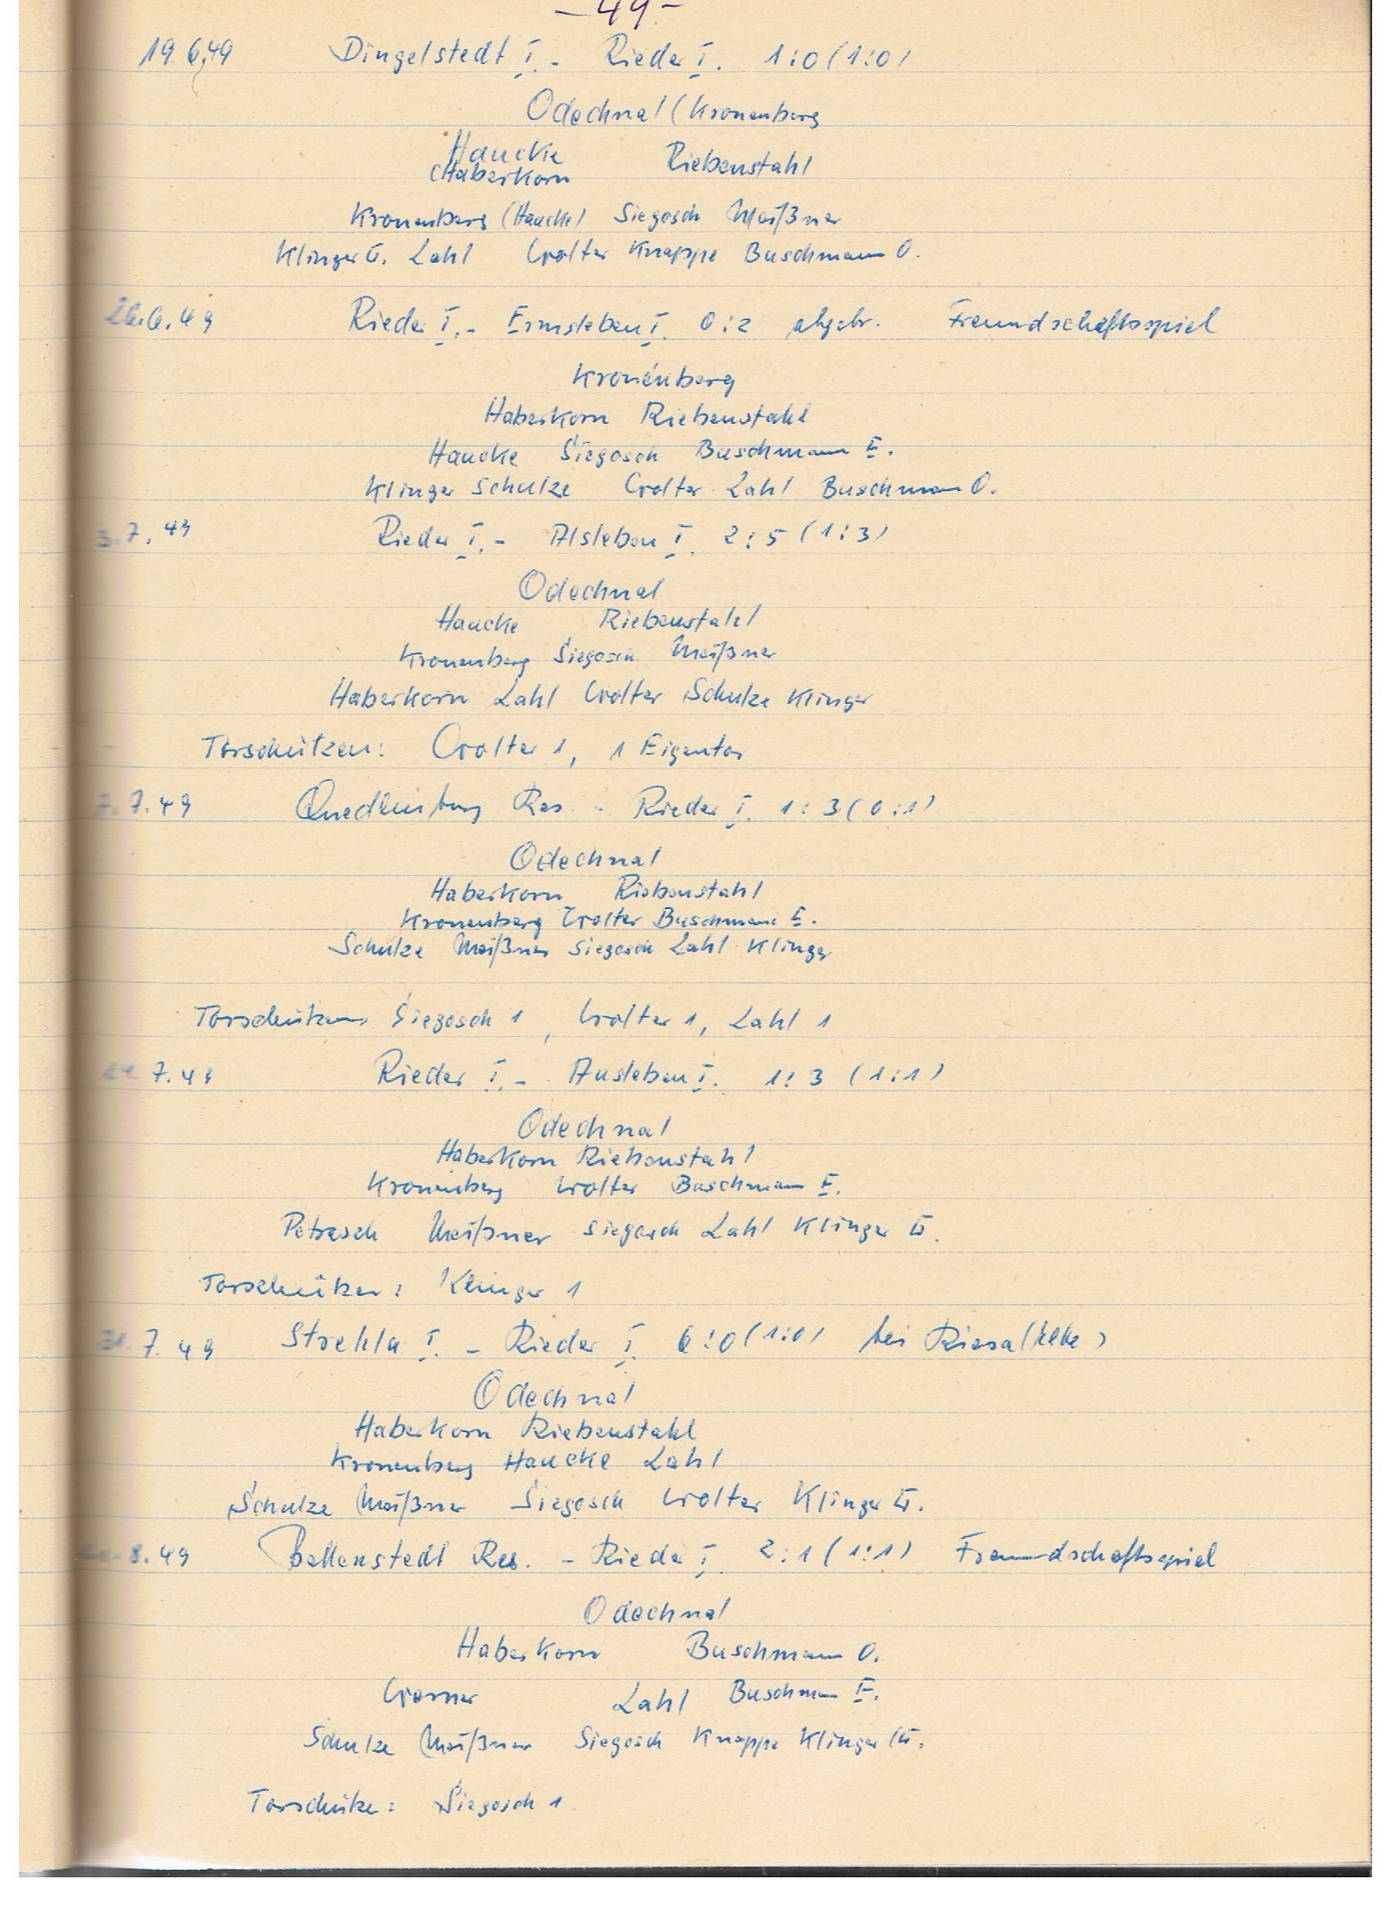 - 49 -
19.6.49 Dingelstedt I. - Rieder I. 1:0 (1:0)
Odechnal (Kronenberg
Haucke Riebenstahl
(Haberkorn
Kronenberg (Haucke) Siegosch Meißner
Klinger Lahl Wolter Knappe Buschmann O.
26.6.49 Rieder I. - Ermsleben I. 0:2 abgebr. Freundschaftsspiel
Kronenberg
Haberkorn Riebenstahl
Haucke Siegosch Buschmann E.
Klinger Schulze Wolter Lahl Buschmann O.
3.7.49 Rieder I. - Alsleben I. 2:5 (1:3)
Odechnal
Haucke Riebenstahl
Kronenberg Siegosch Meißner
Haberkorn Lahl Wolter Schulze Klinger
Torschützen: Wolter 1, 1 Eigentor
7.7.49 Quedlinburg Res. - Rieder I. 1:3 (0:1)
Odechnal
Haberkorn Riebenstahl
Kronenberg Wolter Buschmann E.
Schulze Meißner Siegosch Lahl Klinger
Torschützen Siegosch 1, Wolter 1, Lahl 1
24.7.49 Rieder I. - Ausleben I. 1:3 (1:1)
Odechnal
Haberkorn Riebenstahl
Kronenberg Wolter Buschmann E.
Petrasch Meißner Siegosch Lahl Klinger
Torschützen: Klinger 1
31.7.49 Strehla I. - Rieder I. 6:0 (1:0) bei Riesa (Elbe)
Odechnal
Haberkorn Riebenstahl
Kronenberg Haucke Lahl
Schulze Meißner Siegosch Wolter Klinger
8.49 Ballenstedt Res. - Rieder I. 2:1 (1:1) Freundschaftsspiel
Odechnal
Haberkorn Buschmann O.
Lahl Buschmann E.
Schulze Meißner Siegosch Knappe Klinger
Torschütze: Siegosch 1